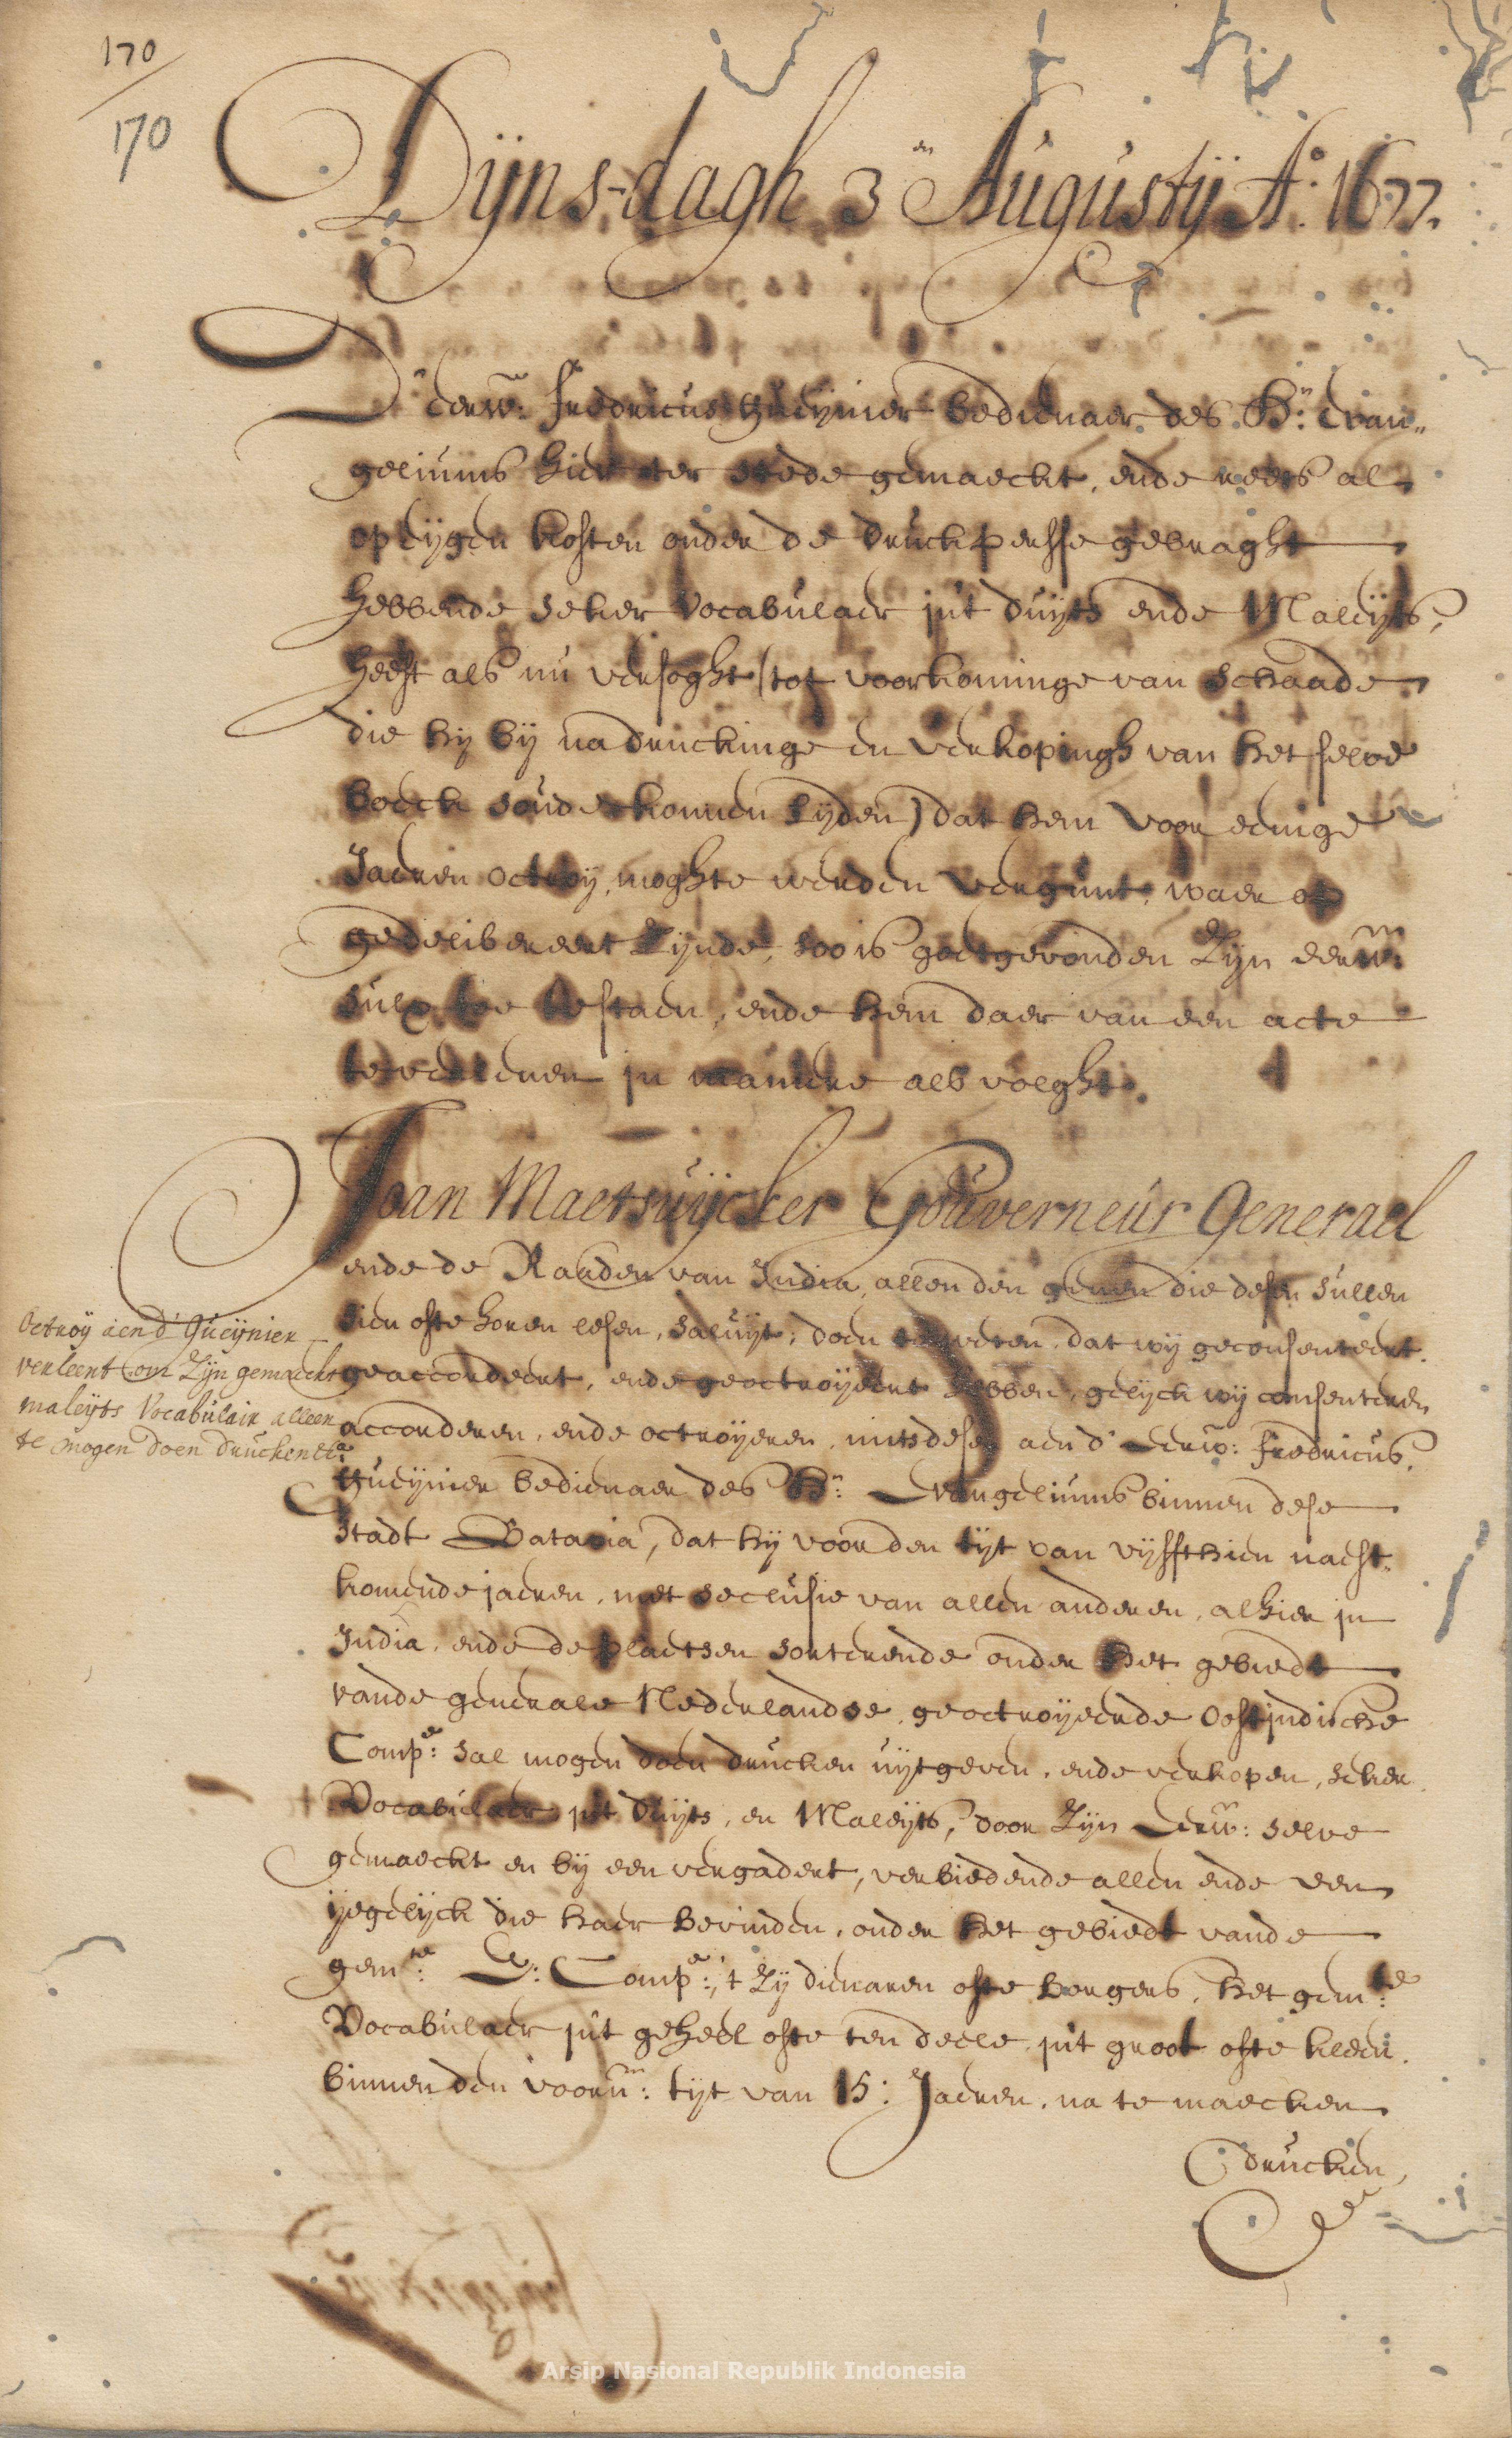 170
170
Dijns-dagh 3en Augustij Ao: 1677.
D' eerw: fredricus Gueijnier bedienaer des Hn: Evan„
geliums hier ter stede gemaeckt, ende reets al
op eijgen kosten onder de druckpersse gebraght
hebbende seker vocabulaer int duijts ende Maleijts,
heeft als nu versoght (tot voorkominge van schaade
die hij bij nadruckinge en verkopingh van het selve
boeck soude komen lijden) dat hem voor eenige
Jaeren octroij moghte werden vergunt, waer op
gedelibereert zijnde, soo is goetgevonden zijn eerw:
sulx toe te staen, ende hem daer van een acte
te verleenen in maniere als volght.
Joan Maetsuijcker Gouverneur Generael
ende de Raaden van India, allen den genen die desen sullen
sien ofte horen lesen, saluijt, doen te weten, dat wij geconsenteert,
Octroij aen d' Gueijnier
verleent om zijn gemaeckt
maleijts Vocabulair alleen
te mogen doen drucken etca
geaccordeert, ende geoctroijeert hebben, gelijck wij consenteren
accorderen, ende octroijeren, mits desen aen d' Eerw: fredricus
Gueijnier bedienaer des Hn: Evangeliums binnen dese
Stadt Batavia, dat hij voor den tijt van vijffthien naest-
komende jaeren, met seclusie van allen anderen, alhier in
India, ende de plaetsen sorterende onder het gebiedt
vande generale Nederlandse geoctroijeerde Oostindische
Compe: sal mogen doen drucken uijtgeven, ende verkopen, seker
Vocabulaer int duijts, en Maleijts, door zijn Eerw: selve
gemaeckt en bij een vergadert, verbiedende allen ende een
ijegelijck die haer bevinden, onder het gebiedt vande
gemte: E: Compe:, 't zij dienaren ofte borgers, het gemte:
Vocabulaer int geheel ofte ten deele, int groot ofte kleen
binnen den voorn: tijt van 15: Jaeren, na te maecken
drucken,
Arsip Nasional Republik Indonesia